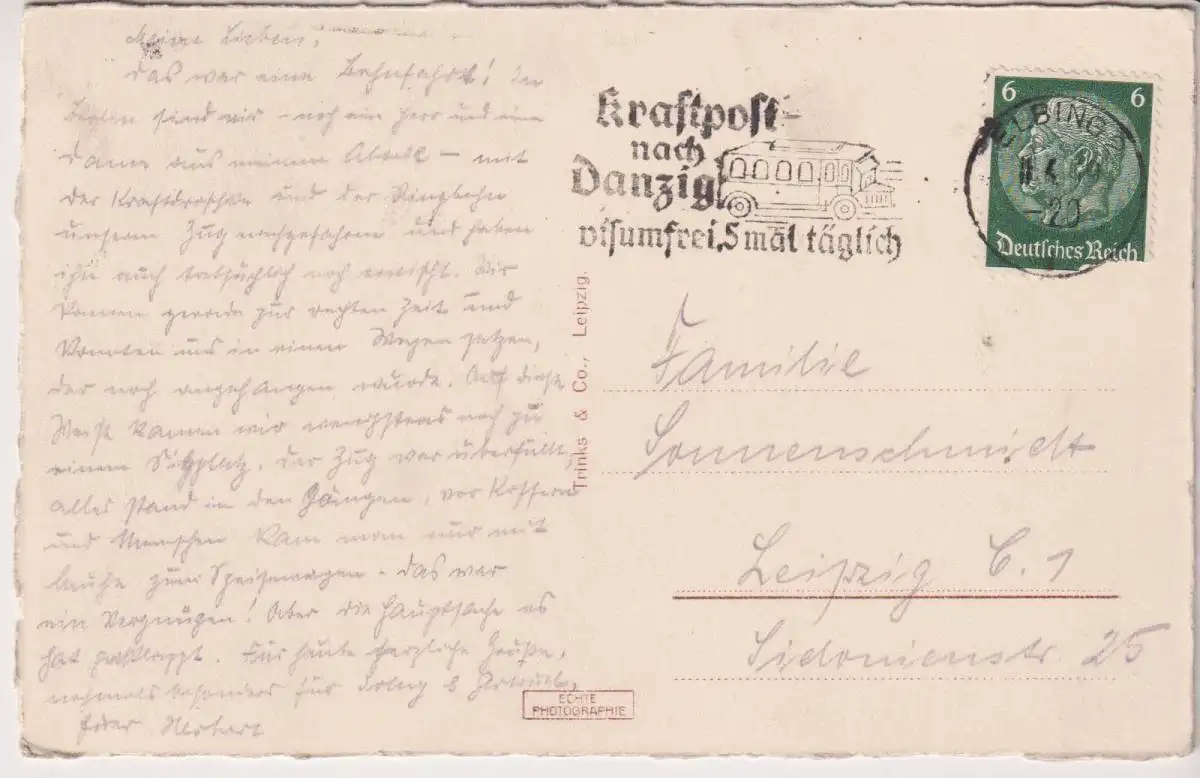 Meine Lieben,
Das war eine Bahnfahrt! In
sind wir – noch ein Herr und eine
Dame aus meinem – mit
der Kraftdroschke und der Ringbahn
unserem Zug nachgefahren und haben
ihn auch tatsächlich noch erwischt. Wir
kamen gerade zur rechten Zeit und
konnten uns in einen Wagen setzen,
der noch angehangen wurde. Auf diese
Weise kamen wir wenigstens noch zu
einem Sitzplatz. Der Zug war überfüllt,
alles stand in den Gängen, vor Koffern
und Menschen kam man nur mit
zum Speisewagen. Das war
ein Vergnügen! Aber die Hauptsache es
hat geklappt. Für heute herzliche Grüße,
nochmals besonders für &
Euer
Kraftpost
nach
Danzig
visumfrei, 5 mal täglich
6 6
ELBING
-20
Deutsches Reich
Trinks & Co., Leipzig.
Familie
Sonnenschmidt
Leipzig C. 1
Sidonienstr. 25
ECHTE
PHOTOGRAPHIE